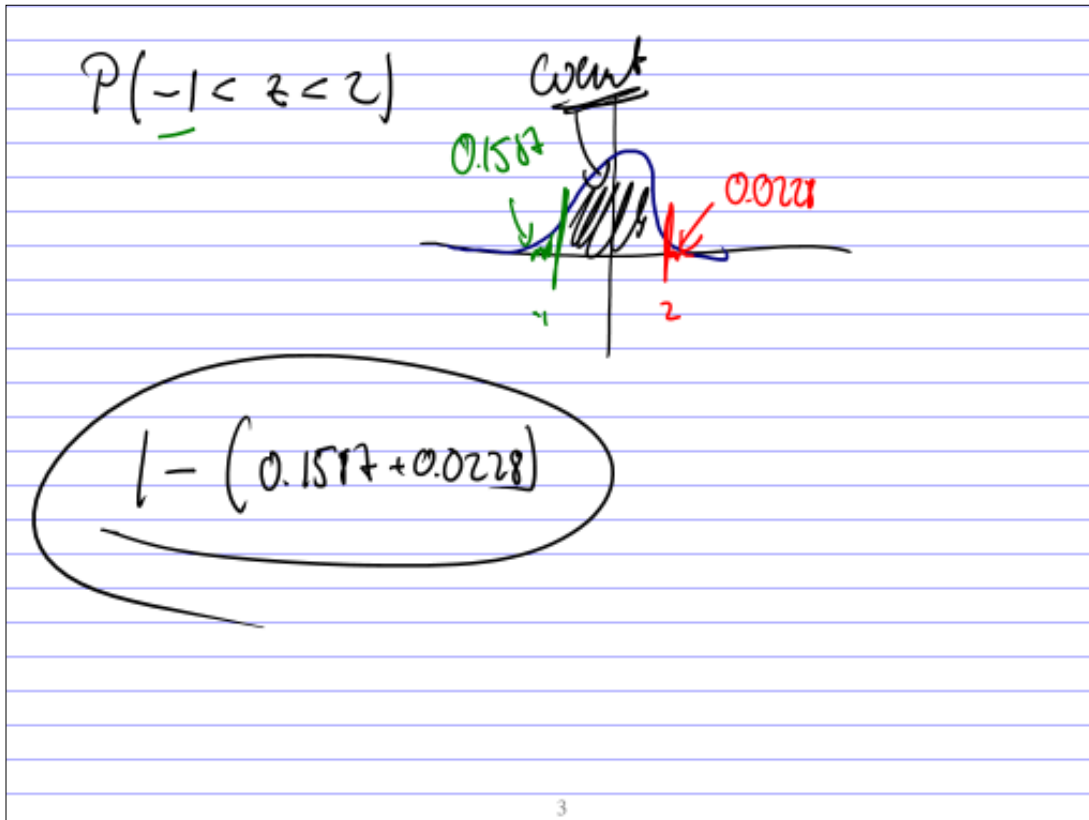 P(-1 < z < 2)
0.1587
0.0228
-1
2
1 - (0.1587 + 0.0228)
3